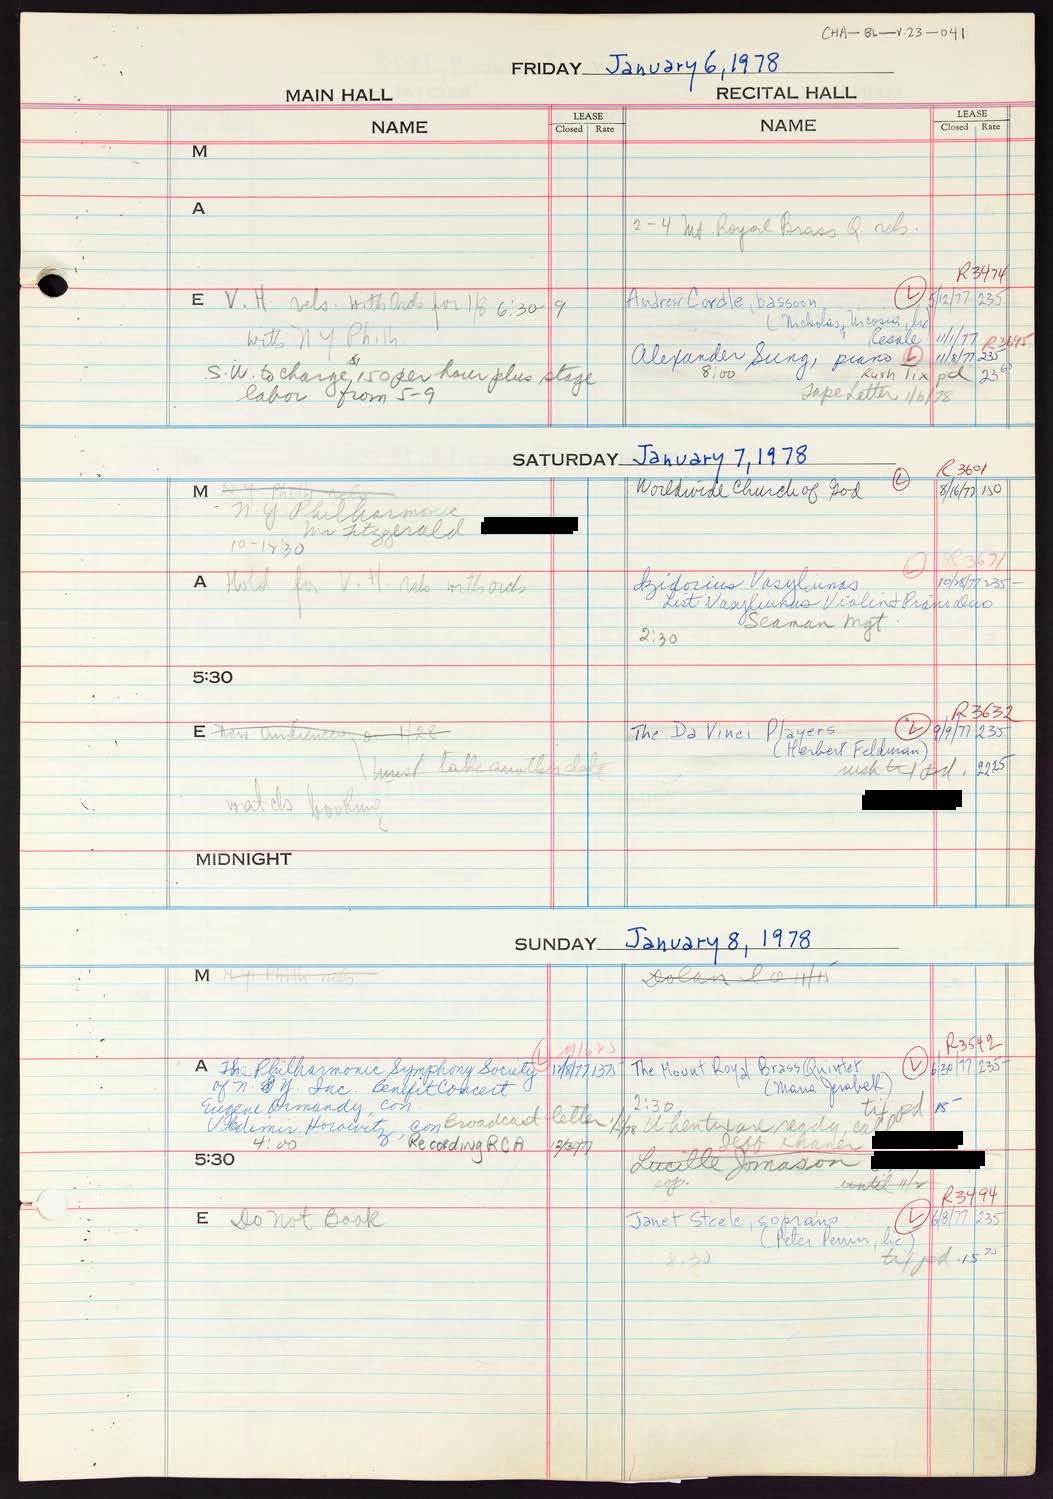 CHA-BL-V.23-041
FRIDAY January 6, 1978
MAIN HALL
RECITAL HALL
NAME
LEASE
Closed Rate
NAME
LEASE
Closed Rate
M
A
2-4 Mt. Royal Brass Q rehs.
R3474
E V. H. rehs. with Ords for 1/8 6:30-9
Andrew Cordle, bassoon L 5/12/77 235
with N Y Phil.
Resale 11/1/77 R3695
S.W. to charge $150 per hour plus stage
labor from 5-9
Alexander Sung, piano L 11/8/77 235
8:00 Rush Tix pd 23
Tape Letter 1/6/78
SATURDAY January 7, 1978
R3601
M N.Y. Philh rehs
Worldwide Church of God L 8/16/77 150
N.Y Philharmonic
Mr Fitzgerald
10-12:30
R3671
A Hold for V. H. rehs with ords
Izidorius Vasyliunas L 10/28/77 235-
List Vasyliunas Violin & Piano Duo
Seaman Mgt.
2:30
5:30
R3632
E New Audiences or 1/28
The Da Vinci Players L 9/9/77 235
(Herbert Feldman)
must take another date
rush tix pd. 2225
watch booking
MIDNIGHT
SUNDAY January 8, 1978
M N.Y. Philh rehs
Dolan 11/15
R3542
A The Philharmonic Symphony Society L 12/8/77 1375
of N. Y. Inc. Benefit Concert
Eugene Ormandy, con.
Vladimir Horowitz, con Broadcast letter
4:00 Recording RCA 12/30/77
The Mount Royal Brass Quintet L 6/30/77 235-
(Maria Jerabek)
2:30 tix pd 15-
When tix are ready, call
Jeff
5:30
Lucille Jomason
until 11/2
R3494
E Do Not Book
Janet Steele, soprano L 6/8/77 235
(Peter Perrin, Inc)
8:30 tix pd. 15